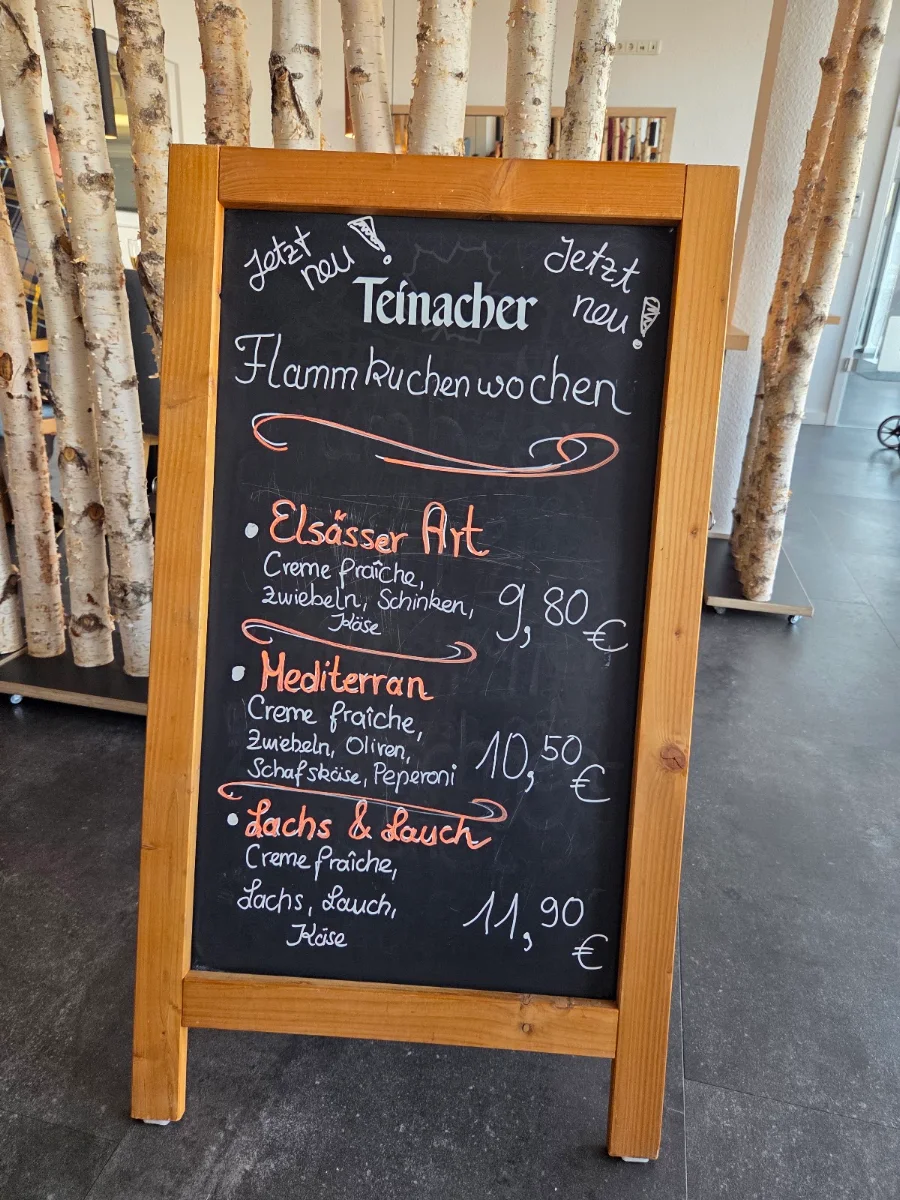 Jetzt neu!
Jetzt neu!
Teinacher
Flammkuchenwochen
• Elsässer Art
Creme fraîche,
Zwiebeln, Schinken,
Käse
9,80 €
• Mediterran
Creme fraîche,
Zwiebeln, Oliven,
Schafskäse, Peperoni
10,50 €
• Lachs & Lauch
Creme fraîche,
Lachs, Lauch,
Käse
11,90 €